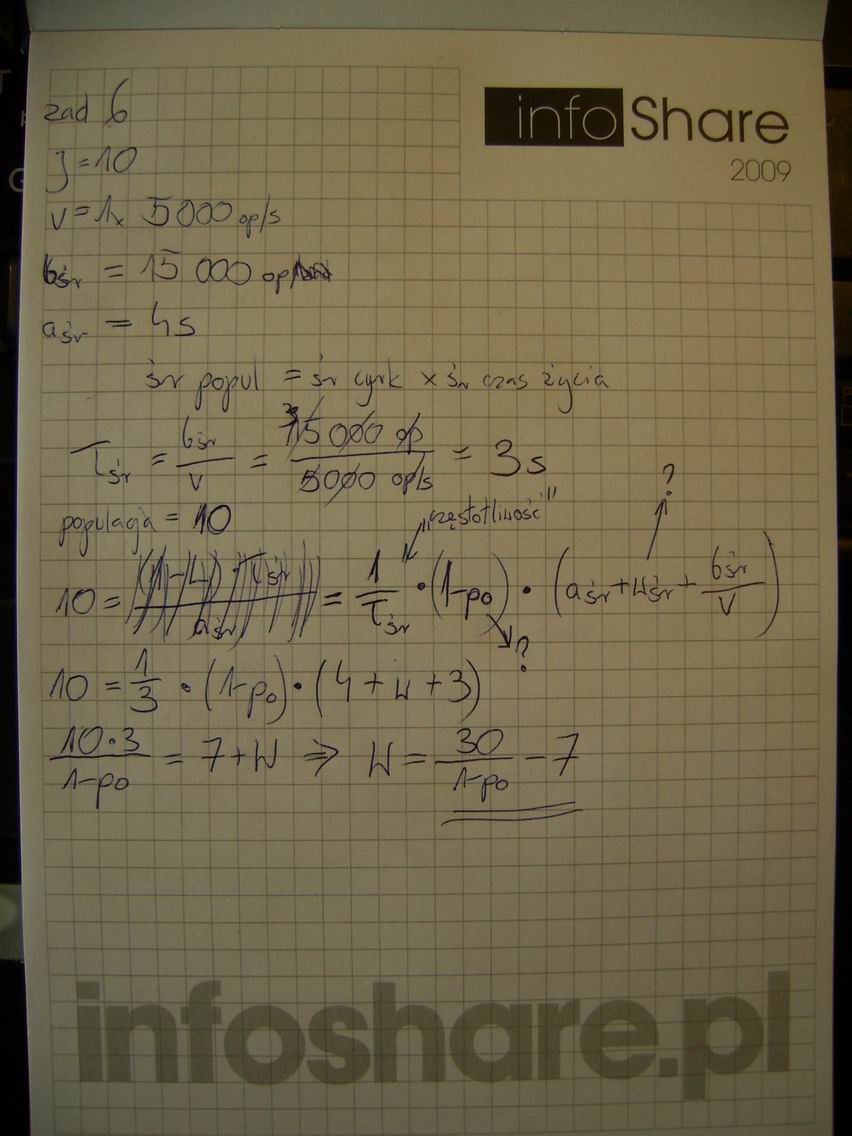 infoShare
2009
zad 6
J=10
v=1x 5000 op/s
bśr = 15 000 op
aśr = 4s
śr popul = śr cyrk x śr czas życia
τśr = bśr/v = 15 000 op/5000 op/s = 3s
3
populacja = 10
"częstotliwość"
?
10 = = 1/τśr • (1-po) • (aśr+wśr+bśr/v)
?
10 = 1/3 • (1-po) • (4+w+3)
10•3/1-po = 7+W ⇒ W = 30/1-po -7
infoshare.pl